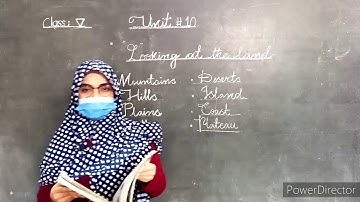 Class: V
Unit #10
Looking at the land
Mountains
Hills
Plains
Deserts
Island
Coast
Plateau
PowerDirector